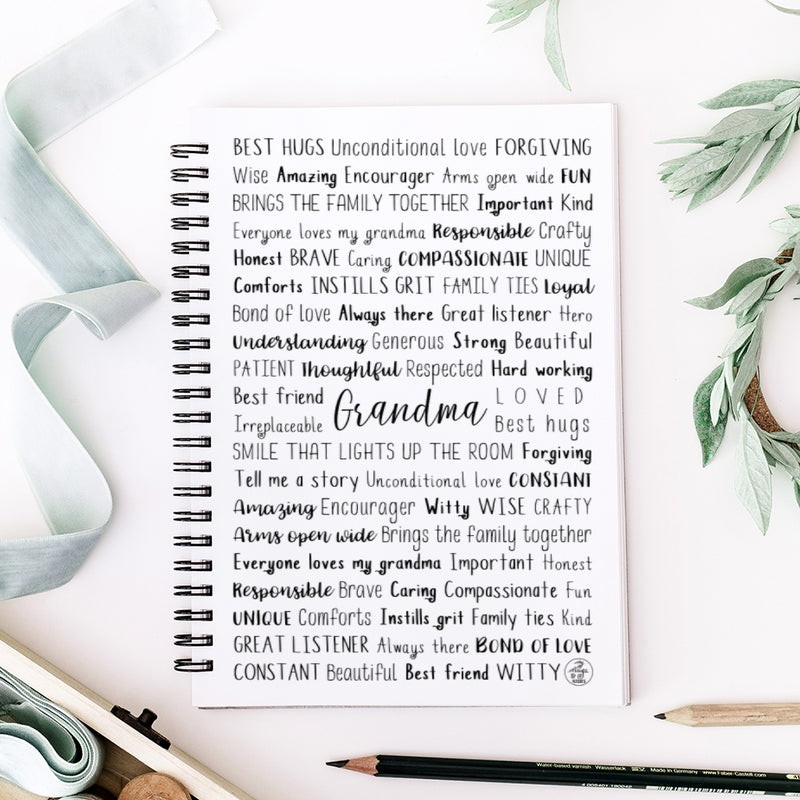 BEST HUGS Unconditional love FORGIVING
Wise Amazing Encourager Arms open wide FUN
BRINGS THE FAMILY TOGETHER Important Kind
Everyone loves my grandma Responsible Crafty
Honest BRAVE Caring COMPASSIONATE UNIQUE
Comforts INSTILLS GRIT FAMILY TIES Loyal
Bond of love Always there Great listener Hero
Understanding Generous Strong Beautiful
PATIENT Thoughtful Respected Hard working
Best friend Grandma LOVED
Irreplaceable Best hugs
SMILE THAT LIGHTS UP THE ROOM Forgiving
Tell me a story Unconditional love CONSTANT
Amazing Encourager Witty WISE CRAFTY
Arms open wide Brings the family together
Everyone loves my grandma Important Honest
Responsible Brave Caring Compassionate Fun
UNIQUE Comforts Instills grit Family ties Kind
GREAT LISTENER Always there BOND OF LOVE
CONSTANT Beautiful Best friend WITTY
Water-based varnish Wasserlack Made in Germany www.Faber-Castell.com